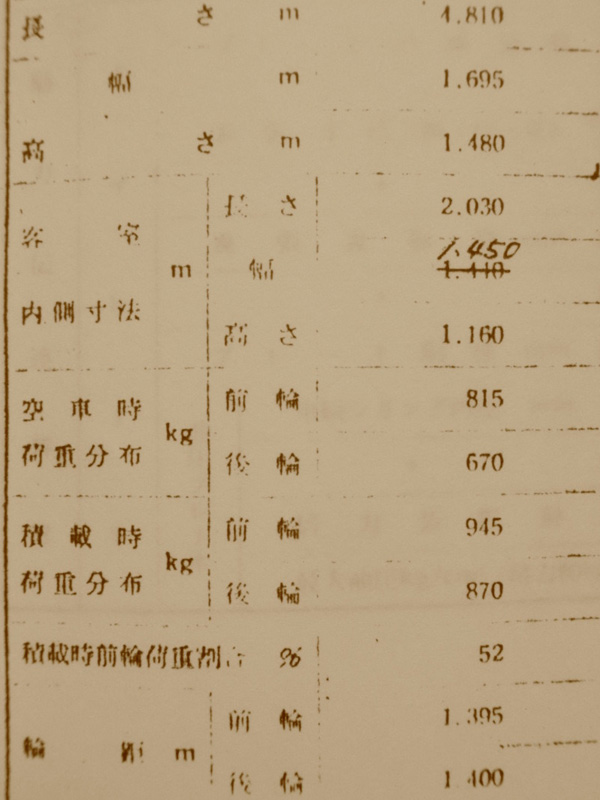 長さ m 4.810
幅 m 1.695
高さ m 1.480
客室内側寸法 m 長さ 2.030
幅 1.450 1.410
高さ 1.160
空車時荷重分布 kg 前輪 815
後輪 670
積載時荷重分布 kg 前輪 945
後輪 870
積載時前輪荷重割合 % 52
輪距 m 前輪 1.395
後輪 1.400